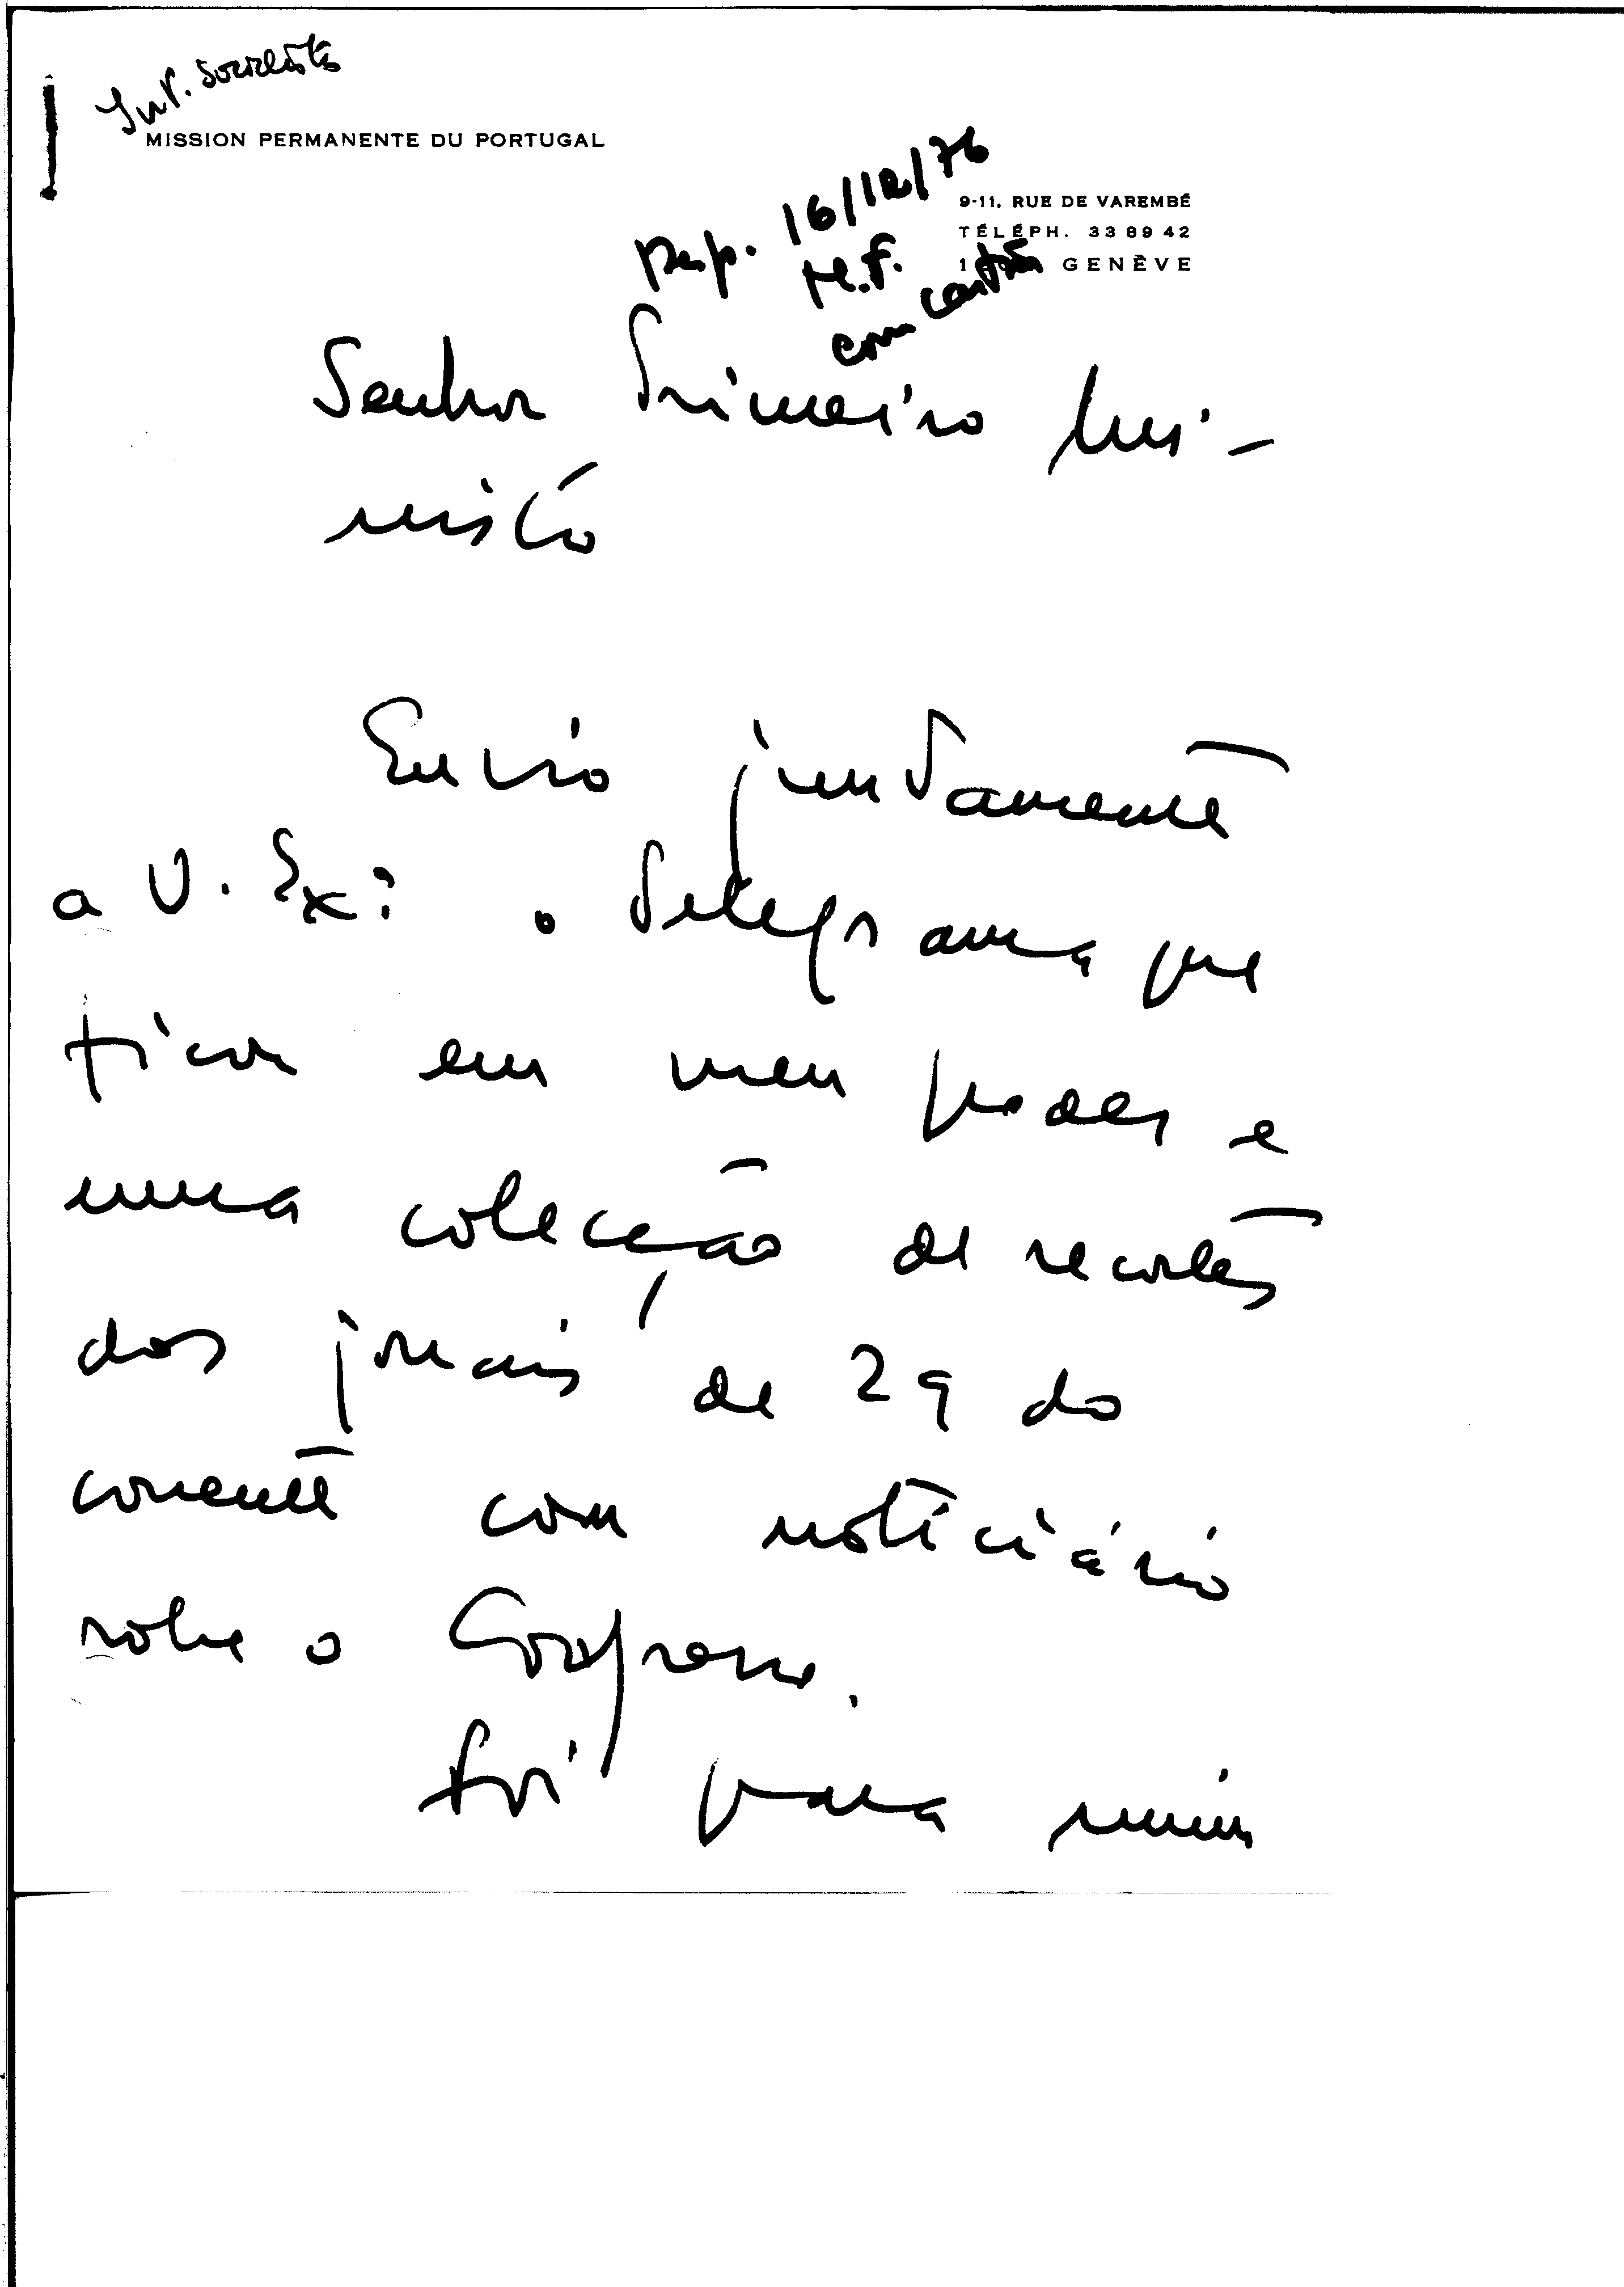 Int. Socialista
MISSION PERMANENTE DU PORTUGAL
Resp. 16/12/76
M.F.
com cartão
9-11, RUE DE VAREMBÉ
TÉLÉPH. 33 89 42
GENÈVE
Senhor Primeiro Mi-
nistro
Envio juntamente
a V. Ex.ª o telegrama que
ficou em meu poder e
uma coleção de recortes
dos jornais de 29 do
corrente com noticiário
sobre o Congresso.
Foi para mim